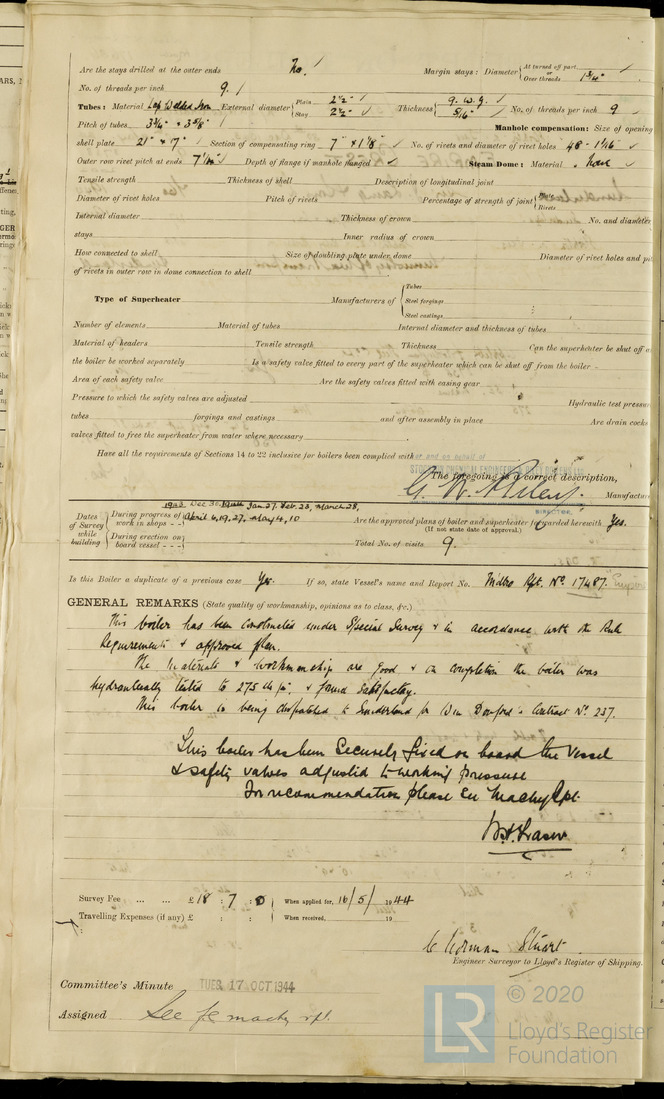 Are the stays drilled at the outer ends No. Margin stays: Diameter { At turned off part Over threads 1 3/4"
No. of threads per inch 9.
Tubes: Material Lap Welded Iron External diameter { Plain 2 1/2" Stay 2 1/2" Thickness { 9. W. G. 5/16" No. of threads per inch 9
Pitch of tubes 3 3/4" × 3 5/8" Manhole compensation: Size of opening
shell plate 21" × 17" Section of compensating ring 7" × 1 1/8" No. of rivets and diameter of rivet holes 48 - 1 1/16"
Outer row rivet pitch at ends 7 1/16" Depth of flange if manhole flanged Steam Dome: Material None
Tensile strength Thickness of shell Description of longitudinal joint
Diameter of rivet holes Pitch of rivets Percentage of strength of joint { Plate Rivets
Internal diameter Thickness of crown No. and diameter
stays Inner radius of crown
How connected to shell Size of doubling plate under dome Diameter of rivet holes and
of rivets in outer row in dome connection to shell
Type of Superheater Manufacturers of { Tubes Steel forgings Steel castings
Number of elements Material of tubes Internal diameter and thickness of tubes
Material of headers Tensile strength Thickness Can the superheater be shut off
the boiler be worked separately Is a safety valve fitted to every part of the superheater which can be shut off from the boiler
Area of each safety valve Are the safety valves fitted with easing gear
Pressure to which the safety valves are adjusted Hydraulic test pressure
tubes forgings and castings and after assembly in place Are drain cocks
valves fitted to free the superheater from water where necessary
Have all the requirements of Sections 14 to 22 inclusive for boilers been complied with
For and on behalf of
The foregoing is a correct description,
Manufacturer
DIRECTOR
Dates of Survey while building { During progress of work in shops - - Dec 30, Jan 27, Feb. 23, March 28, April 6, 19, 27, May 4, 10
Are the approved plans of boiler and superheater forwarded herewith Yes.
(If not state date of approval.)
During erection on board vessel - - -
Total No. of visits 9.
Is this Boiler a duplicate of a previous case Yes. If so, state Vessel's name and Report No. Mdbro Rpt. No. 17487.
GENERAL REMARKS (State quality of workmanship, opinions as to class, &c.)
This boiler has been constructed under Special Survey & in accordance with the Rule
Requirements & approved plan.
The materials & workmanship are good & on completion the boiler was
hydraulically tested to 275 lb/□", & found satisfactory.
This boiler is being despatched to Sunderland for Wm Doxford's Contract No. 237.
This boiler has been securely fixed on board the vessel
& safety valves adjusted to working pressure
For recommendation please see Machy Rpt.
W. Fraser
Survey Fee ... ... £ 18 : 7 : 0 When applied for, 16/5/ 1944
Travelling Expenses (if any) £ : : When received, 19
Norman Stuart
Engineer Surveyor to Lloyd's Register of Shipping.
Committee's Minute TUES. 17 OCT 1944
Assigned See fe machy rpt.
© 2020
LR Lloyd's Register
Foundation